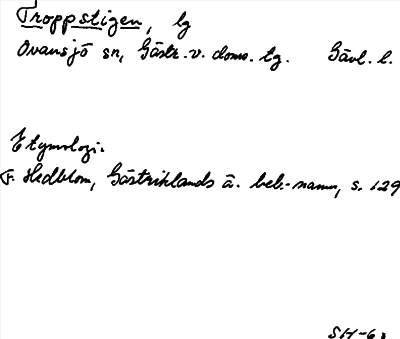 Troppstigen, lg
Ovansjö sn, Gästr. v. doms. tg. Gävl. l.
Etymologi.
F. Hedblom, Gästriklands ä. beb.-namn, s. 129
SH-63